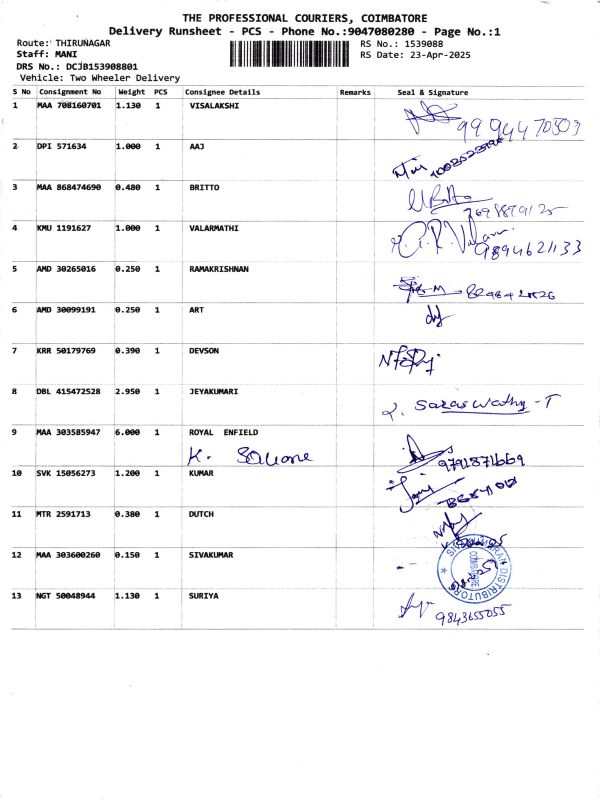 THE PROFESSIONAL COURIERS, COIMBATORE
Delivery Runsheet - PCS - Phone No.:9047080280 - Page No.:1
Route: THIRUNAGAR RS No.: 1539088
Staff: MANI RS Date: 23-Apr-2025
DRS No.: DCJB153908801
Vehicle: Two Wheeler Delivery
S No Consignment No Weight PCS Consignee Details Remarks Seal & Signature
1 MAA 708160701 1.130 1 VISALAKSHI
2 DPI 571634 1.000 1 AAJ
3 MAA 868474690 0.480 1 BRITTO
4 KMU 1191627 1.000 1 VALARMATHI
9894621133
5 AMD 30265016 0.250 1 RAMAKRISHNAN
6 AMD 30099191 0.250 1 ART
7 KRR 50179769 0.390 1 DEVSON
8 DBL 415472528 2.950 1 JEYAKUMARI
Saraswathy - T
9 MAA 303585947 6.000 1 ROYAL ENFIELD
K. Square
9791871669
10 SVK 15056273 1.200 1 KUMAR
11 MTR 2591713 0.380 1 DUTCH
12 MAA 303600260 0.150 1 SIVAKUMAR
DISTRIBUTORS
13 NGT 50048944 1.130 1 SURIYA
9843655055